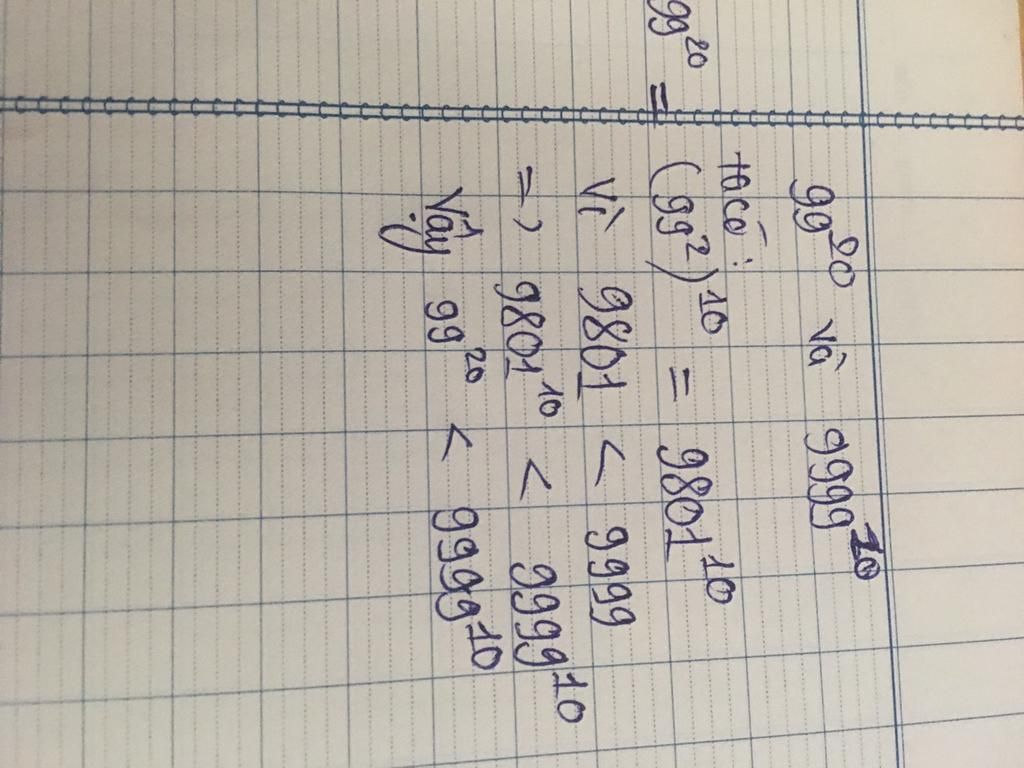 99²⁰ và 9999¹⁰
ta có:
99²⁰ = (99²)¹⁰ = 9801¹⁰
Vì 9801 < 9999
=> 9801¹⁰ < 9999¹⁰
Vậy 99²⁰ < 9999¹⁰